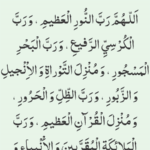 اَللّٰهُمَّ رَبَّ النُّورِ الْعَظيمِ ، وَرَبَّ
الْكُرْسِيِّ الرَّفيعِ ، وَرَبَّ الْبَحْرِ
الْمَسْجُورِ ، وَمُنْزِلَ التَّوْراةِ وَالْاِنْجيلِ
وَالزَّبُورِ ، وَرَبَّ الظِّلِّ وَالْحَرُورِ ،
وَمُنْزِلَ الْقُرْآنِ الْعَظيمِ ، وَرَبَّ
الْمَلائِكَةِ الْمُقَرَّبينَ وَالْاَنْبِياءِ وَ